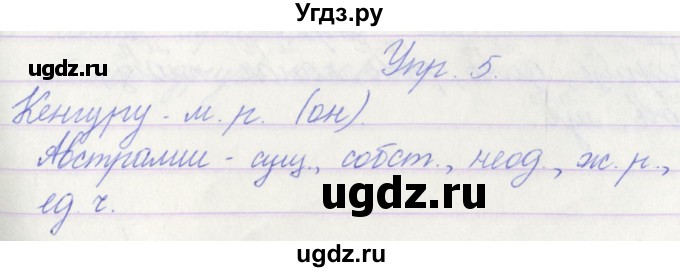 Угдз.ру
ugdz.ru
Упр. 5.
Кенгуру - м. р. (он).
Австралии - сущ., собст., неод., ж. р.,
ugdz.ru
ед. ч.
ugdz.ru
ugdz.ru